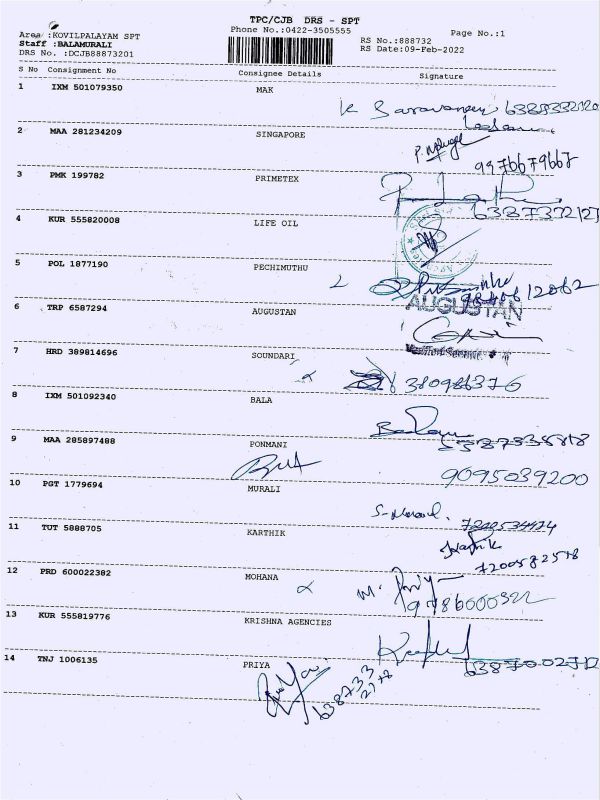 TPC/CJB DRS - SPT
Area :KOVILPALAYAM SPT
Phone No.:0422-3505555
Page No.:1
Staff :BALAMURALI
RS No.:888732
DRS No. :DCJB88873201
RS Date:09-Feb-2022
S No Consignment No Consignee Details Signature
1 IXM 501079350 MAK
K Saravanan
2 MAA 281234209 SINGAPORE
9976679667
3 PMK 199782 PRIMETEX
4 KUR 555820008 LIFE OIL
5 POL 1877190 PECHIMUTHU
6 TRP 6587294 AUGUSTAN
AUGUSTAN
7 HRD 389814696 SOUNDARI
8 IXM 501092340 BALA
9 MAA 285897488 PONMANI
9095039200
10 PGT 1779694 MURALI
11 TUT 5888705 KARTHIK
Karthik
12 PRD 600022382 MOHANA
13 KUR 555819776 KRISHNA AGENCIES
14 TNJ 1006135 PRIYA